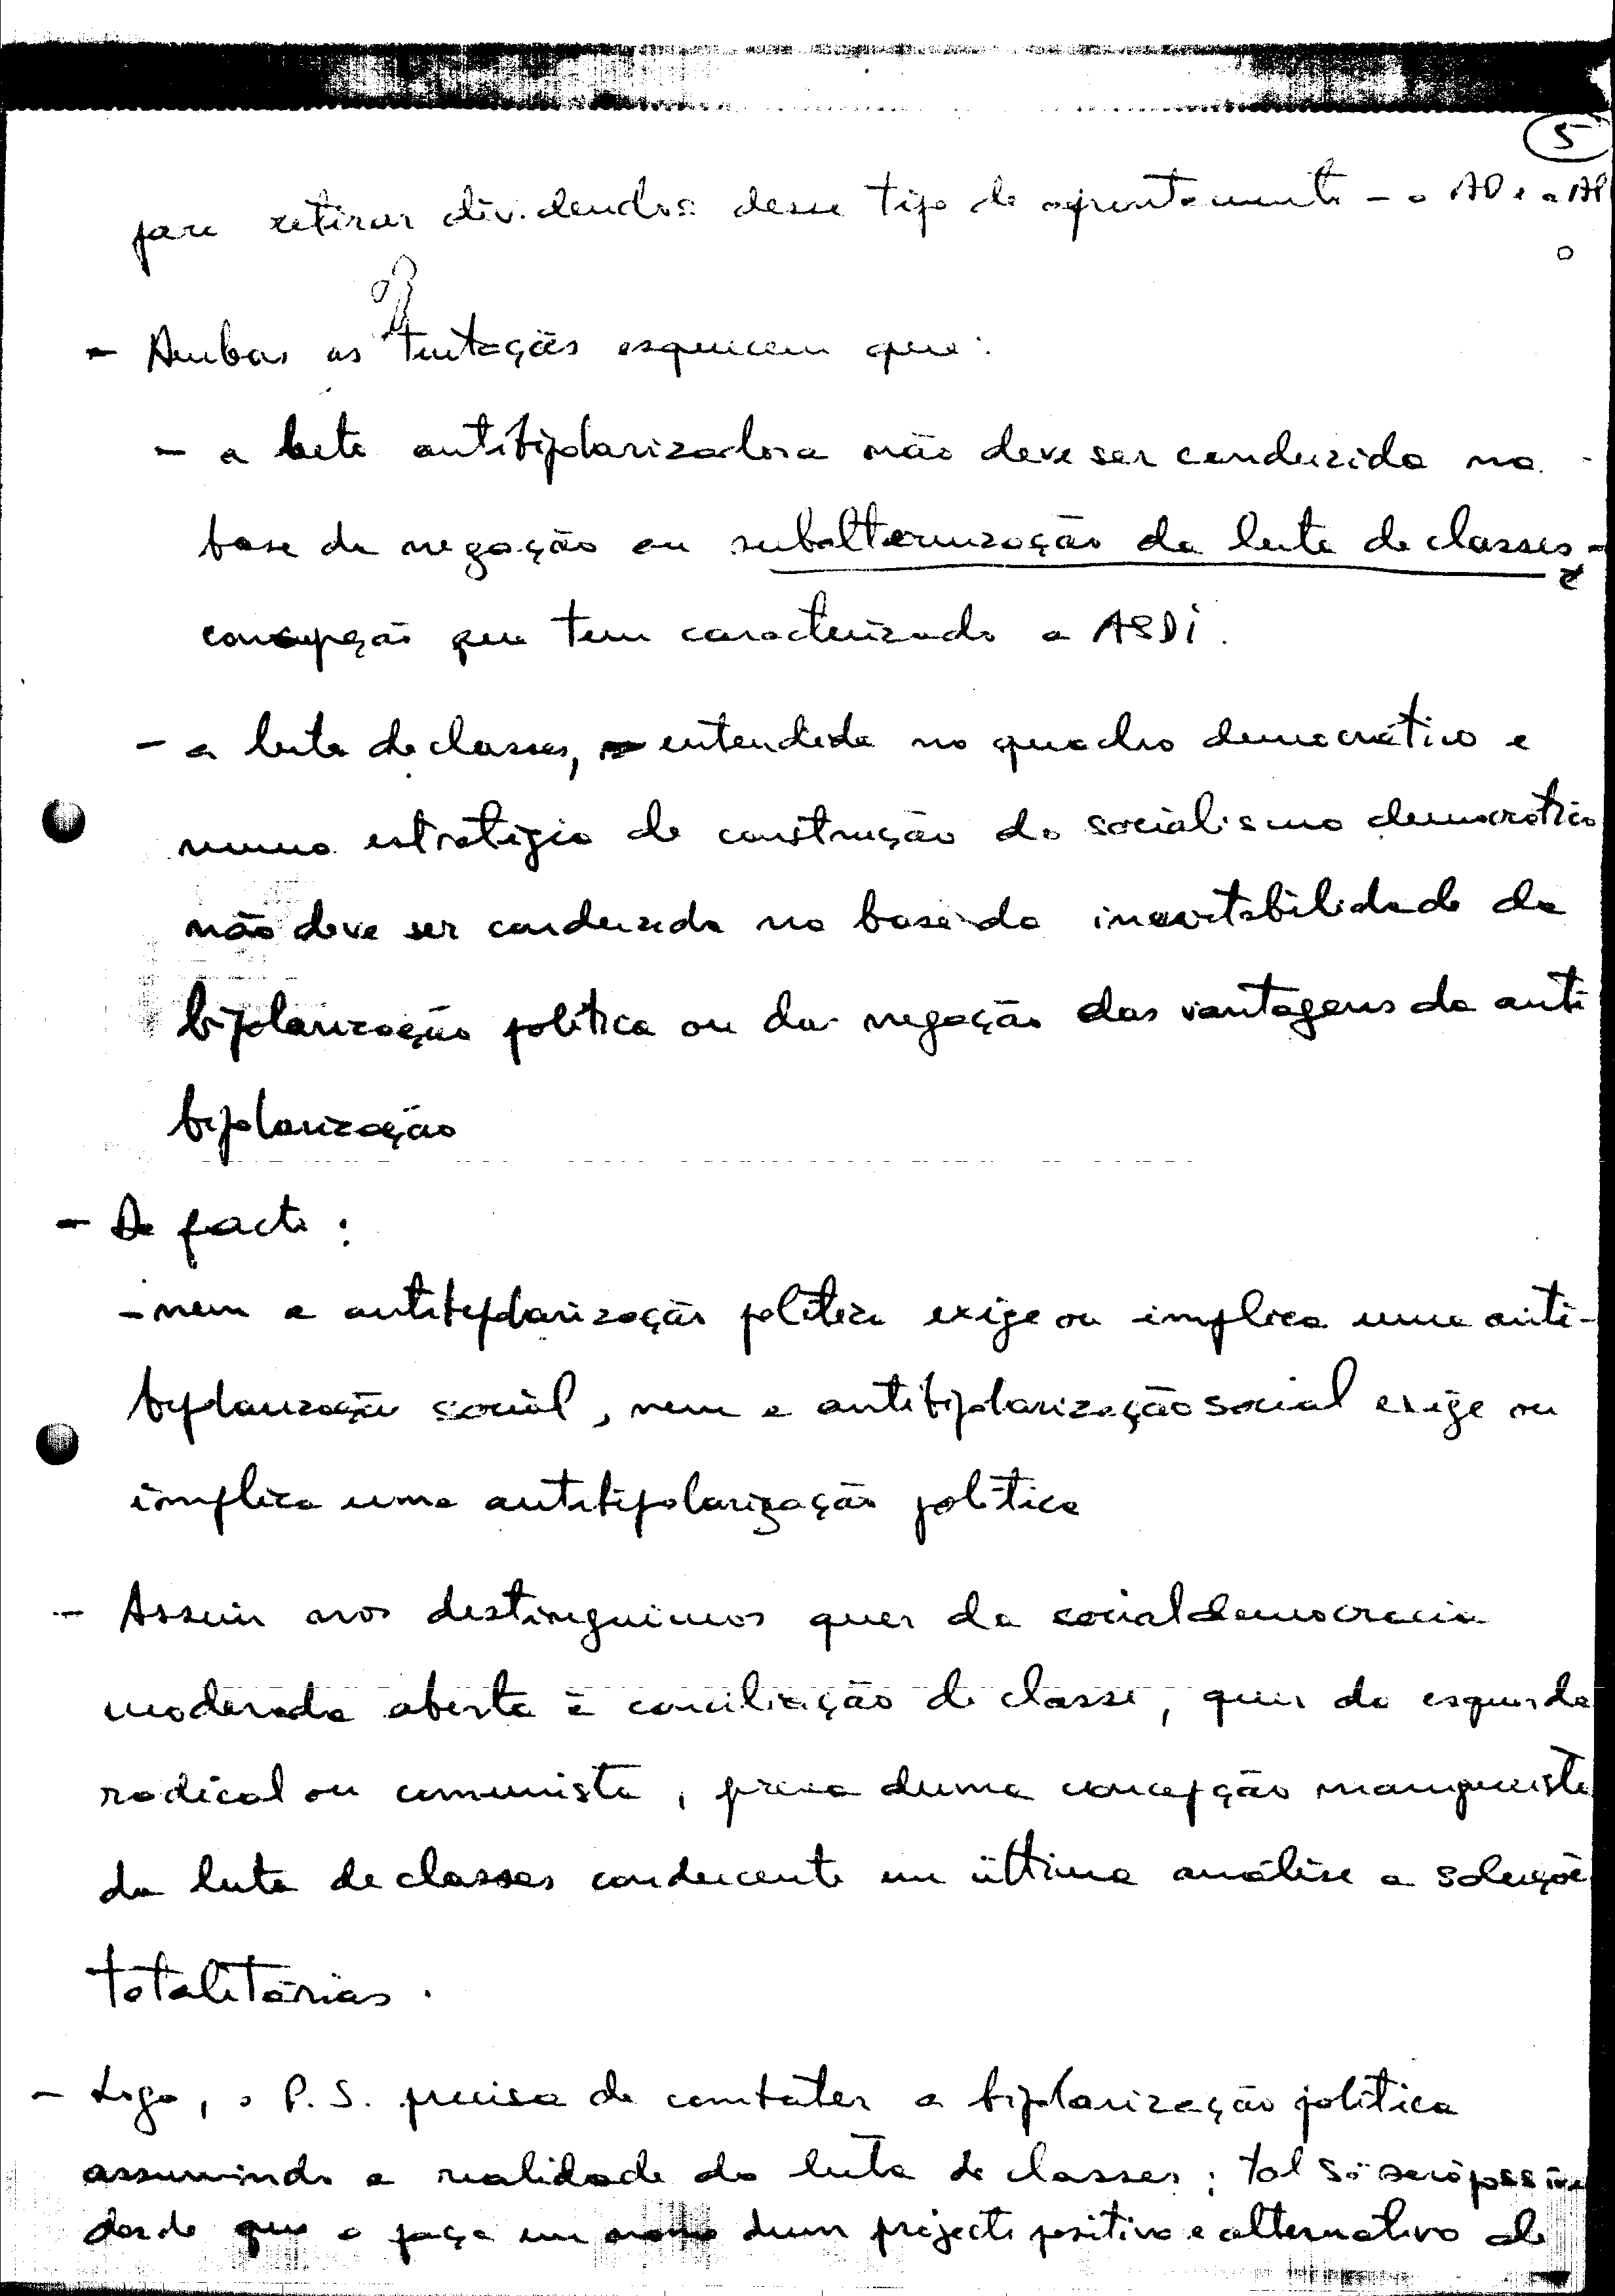 5
para retirar dividendos desse tipo de afrontamento - a AD e a AP
- Ambas as tentações esquecem que:
- a luta antibipolarizadora não deve ser conduzida na
base da negação ou subalternização da luta de classes -
concepção que tem caracterizado a ASDI.
- a luta de classes, entendida no quadro democrático e
numa estratégia de construção do socialismo democrático
não deve ser conduzida na base da inevitabilidade da
bipolarização política ou da negação das vantagens da anti
bipolarização
- De facto:
- nem a antibipolarização política exige ou implica uma anti-
bipolarização social, nem a antibipolarização social exige ou
implica uma antibipolarização política
- Assim nos distinguimos quer da socialdemocracia
moderada aberta à conciliação de classe, quer da esquerda
radical ou comunista, presa duma concepção maniqueista
da luta de classes conducente em última análise a soluçõe
totalitárias.
- Logo, o P. S. precisa de combater a bipolarização política
assumindo a realidade da luta de classes; tal só será possíve
desde que o faça em dum projecto positivo e alternativo de